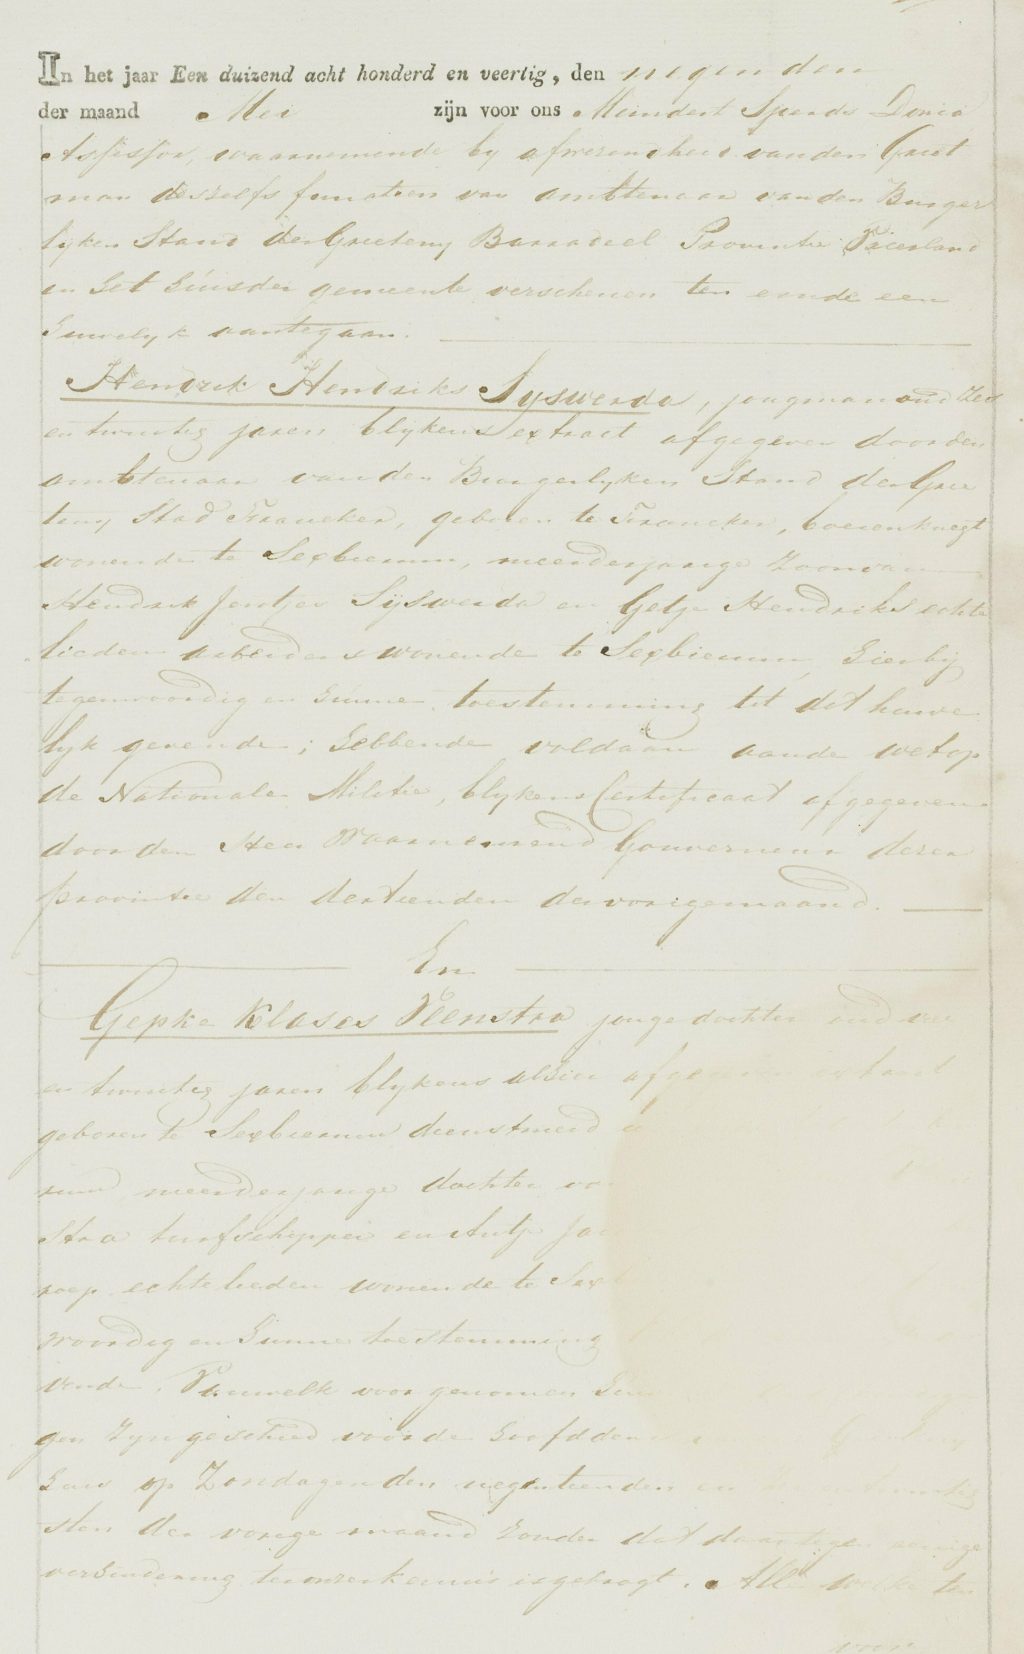 In het jaar Een duizend acht honderd en veertig, den negenden
der maand Mei zijn voor ons Meindert Sjoerds
Assessor, waarnemende by afwezenheid van den Griet
man deszelfs functien van ambtenaar van den Burger
lyken Stand der Grieteny Barradeel Provintie Vriesland
in het huis der gemeente verschenen ten einde een
huwelyk aantegaan.
Hendrik Hendriks Syswerda, jongman oud zes
en twintig jaren blykens extract afgegeven door den
ambtenaar van den Burgerlyken Stand der Grie
teny Stad Franeker, geboren te Franeker, boerenknegt
wonende te Sexbierum, meerderjarige Zoon van
Hendrik Jentjes Syswerda en Getje Hendriks echte
lieden arbeiders wonende te Sexbierum, hierbij
tegenwoordig en hunne toestemming tot dit huwe
lyk gevende; hebbende voldaan aan de wet op
de Nationale Militie, blykens Certificaat afgegeven
door den Heer Waarnemend Gouverneur dezer
provintie den dertienden der vorige maand.
En
Gepke Klases Veenstra jonge dochter oud vier
en twintig jaren blykens alhier afgegeven extract
geboren te Sexbierum dienstmeid
rum meerderjarige dochter van
stra turfschipper en Antje
roep echtelieden wonende te Sexb
woordig en hunne toestemming
vende. Van welk voorgenomen huw
gen zyn geschied voor de hoofddeur
huis op Zondagen den negentienden en zes en twintig
sten der vorige maand zonder dat daartegen eenige
verhindering ter onzer kennis is gebragt. Alle welke ten
voor